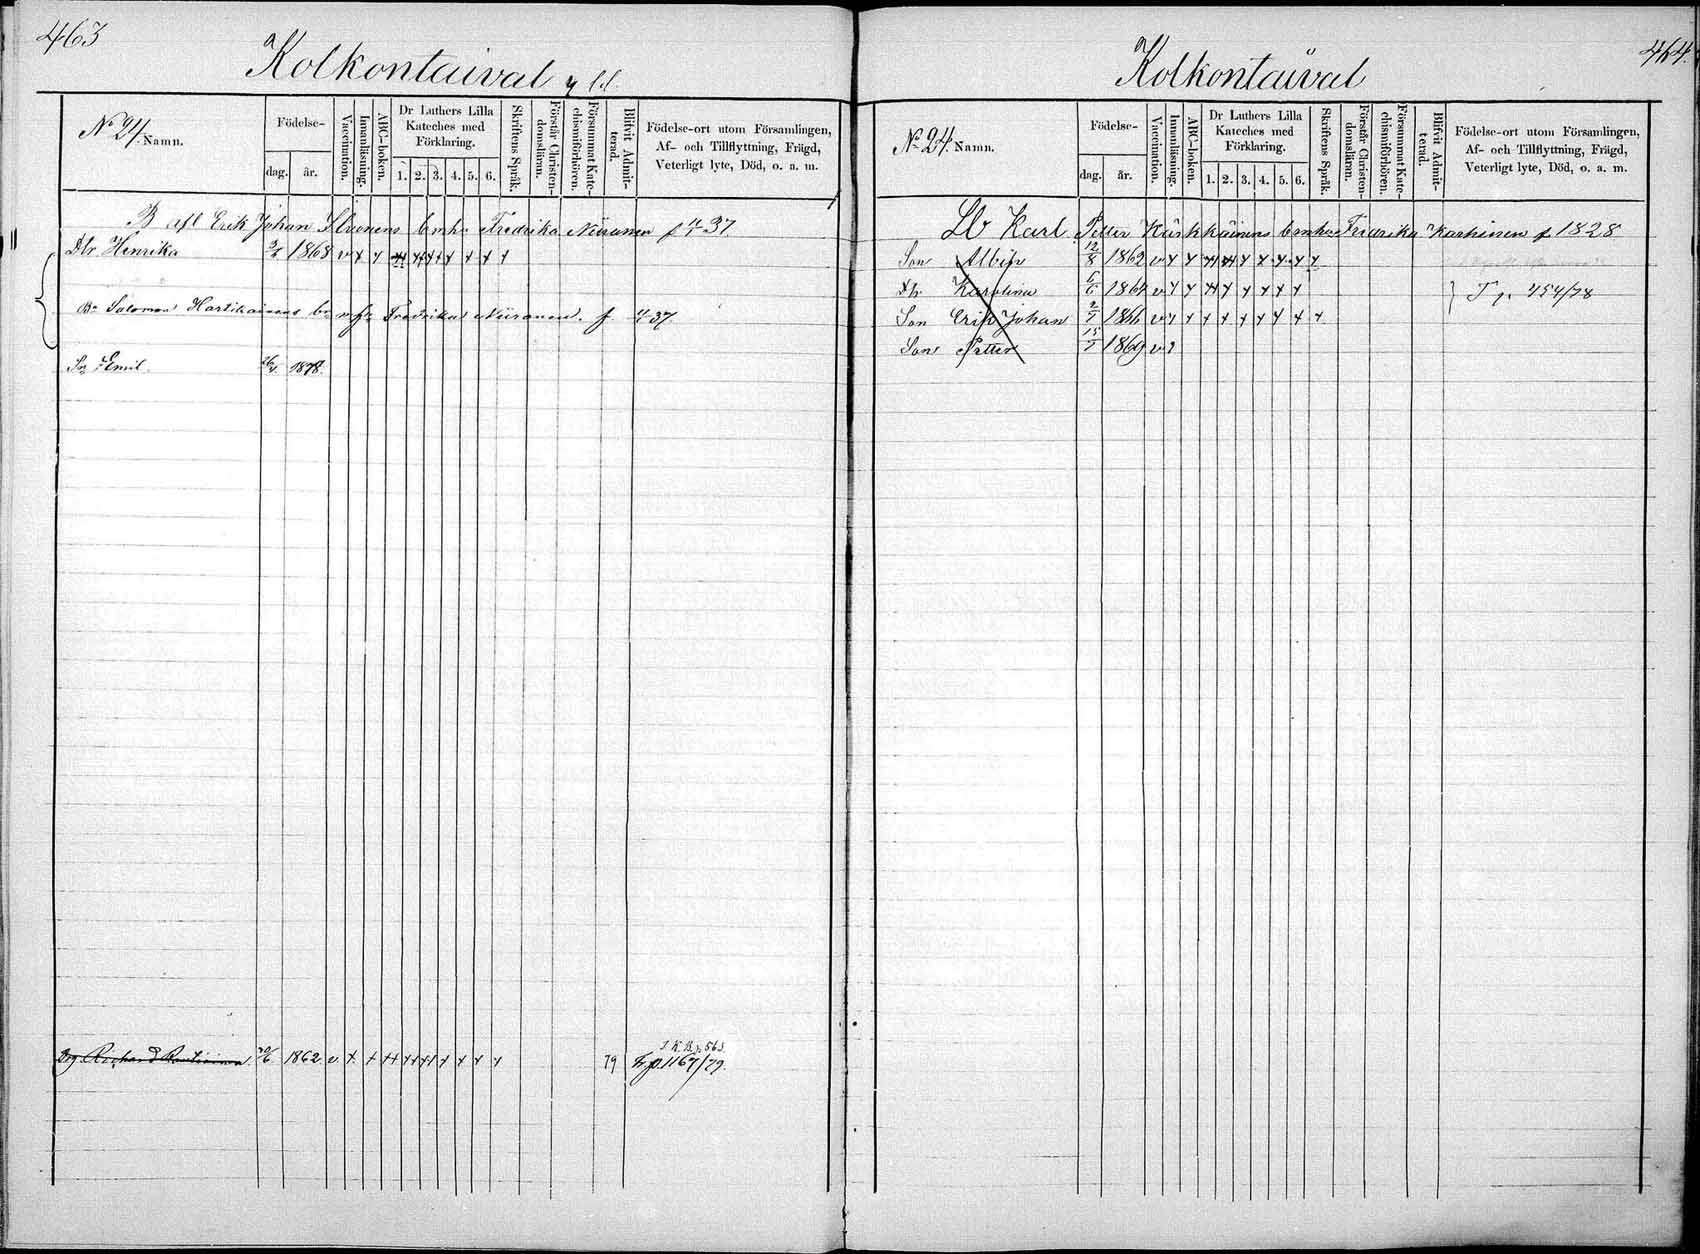 463
Kolkontaival
No 24. Namn.
Födelse-
dag. år.
Vaccination.
Innanläsning.
ABC-boken.
Dr Luthers Lilla
Kateches med
Förklaring.
1. 2. 3. 4. 5. 6.
Skriftens Språk.
Förstår Christen-
domslänn.
Försummat Kate-
chismiförhören.
Blifvit Admit-
terad.
Födelse-ort utom Församlingen,
Af- och Tillflyttning, Frägd,
Veterligt lyte, Död, o. a. m.
B afl Erik Johan Enkans Fredrika Niiranen f 37
Dtr Henrika 1868 v + + + + + + + + +
Bn Salomon Hartikainens Fredrika Niiranen f 37
Son Emil 1878.
Richard 1862 v + + + + + + + + +
79 1167/79.
464.
Kolkontaival
No 24. Namn.
Födelse-
dag. år.
Vaccination.
Innanläsning.
ABC-boken.
Dr Luthers Lilla
Kateches med
Förklaring.
1. 2. 3. 4. 5. 6.
Skriftens Språk.
Förstår Christen-
domslänn.
Försummat Kate-
chismiförhören.
Blifvit Admit-
terad.
Födelse-ort utom Församlingen,
Af- och Tillflyttning, Frägd,
Veterligt lyte, Död, o. a. m.
Lb Karl Petter Kärkkäinens Fredrika Karhinen f 1828
Son Albin 12/8 1862 v + + + + + + + + +
Dtr Karolina 1864 v + + + + + + + +
T p. 454/78
Son Erik Johan 2/7 1866 v + + + + + + + + +
Son Petter 15/7 1869 v